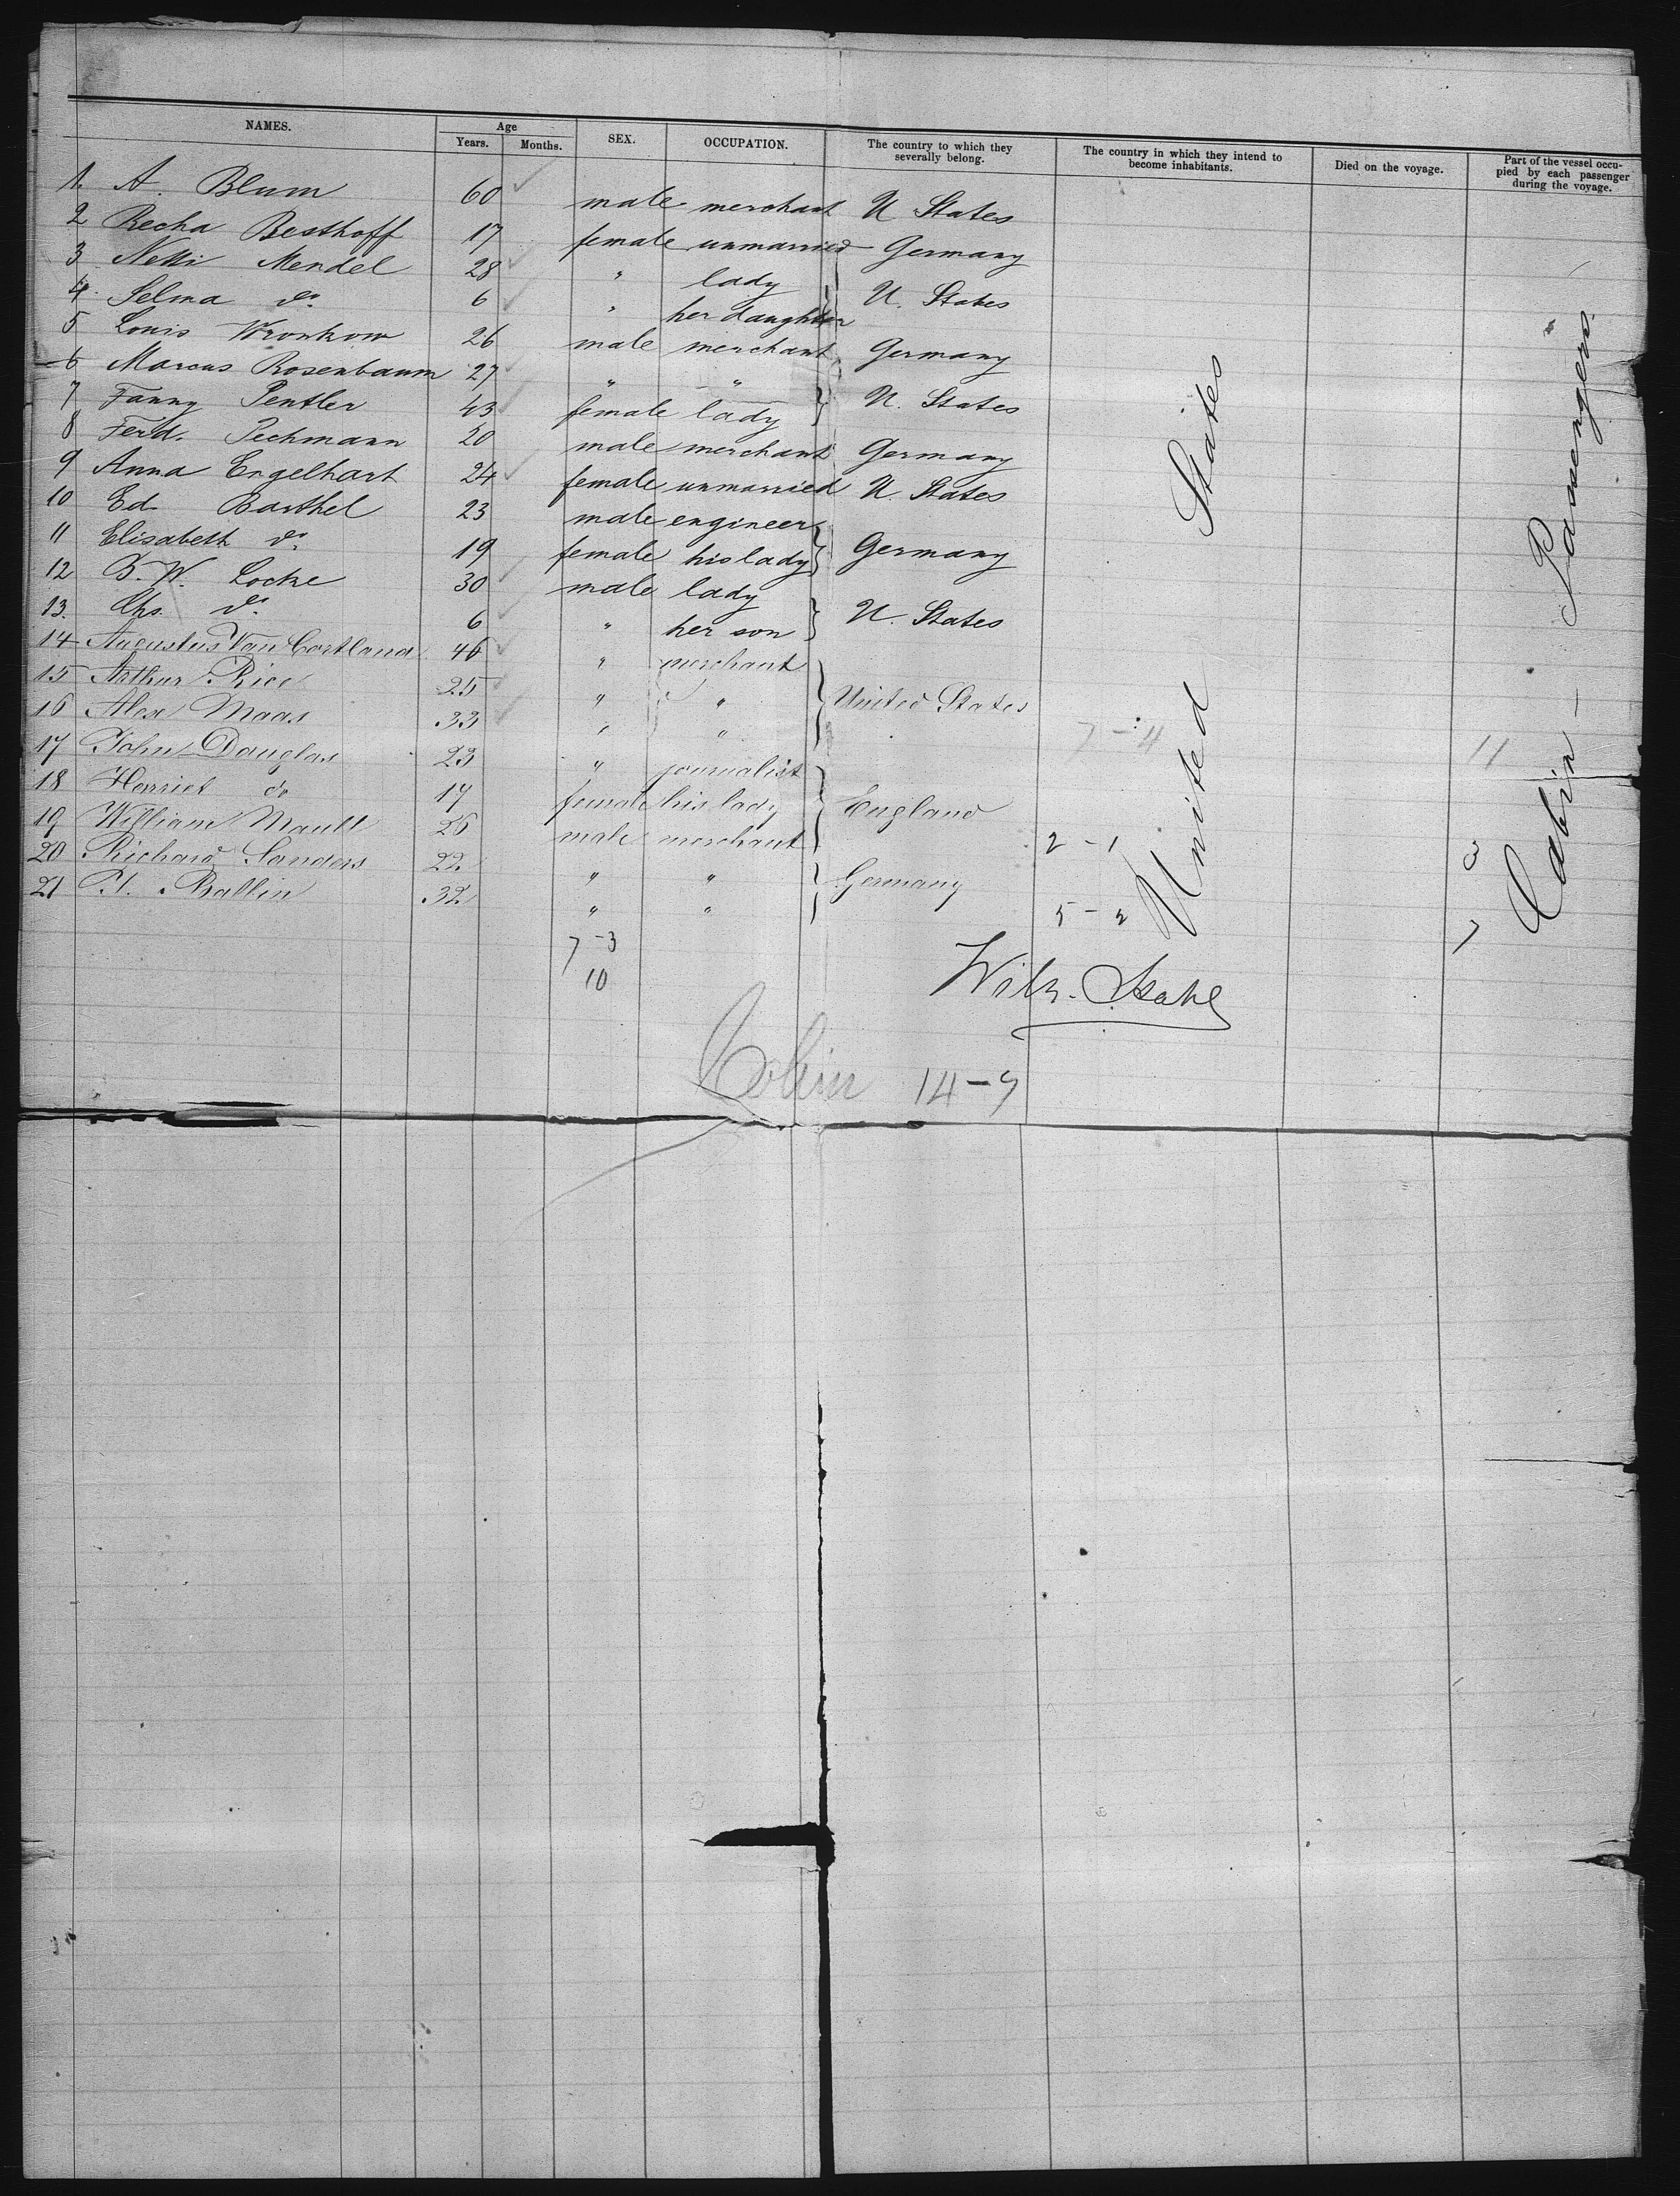 NAMES. Age SEX. OCCUPATION. The country to which they severally belong. The country in which they intend to become inhabitants. Died on the voyage. Part of the vessel occupied by each passenger during the voyage.
Years. Months.
1. A. Blum 60 male merchant U States
2 Recha Besthoff 17 female unmarried Germany
3 Nelli Mendel 28 " lady U. States
4. Selma do 6 " her daughter
5 Louis Wronkow 26 male merchant Germany
6 Marcus Rosenbaum 27 " " U. States
7 Fanny Pentler 43 female lady
8 Ferd. Pechmann 20 male merchant Germany
9 Anna Engelhart 24 female unmarried U. States
10 Ed. Barthel 23 male engineer Germany
11 Elisabeth do 19 female his lady
12 B. W. Locke 30 male lady U. States
13. Chs. do 6 " her son
14 Augustus Van Cortland 46 " merchant
15 Arthur Rice 25 " " United States
16 Alex Maas 33 " "
17 John Douglas 23 " journalist
18 Harriet do 17 female his lady England
19 William Mault 26 male merchant
20 Richard Sanders 22 " " Germany
21 P. Ballin 32 " "
United States
Cabin - Passengers.
7 - 4 11
2 - 1 3
5 - 2 7
7 - 3
10
Wilh.
14 - 7